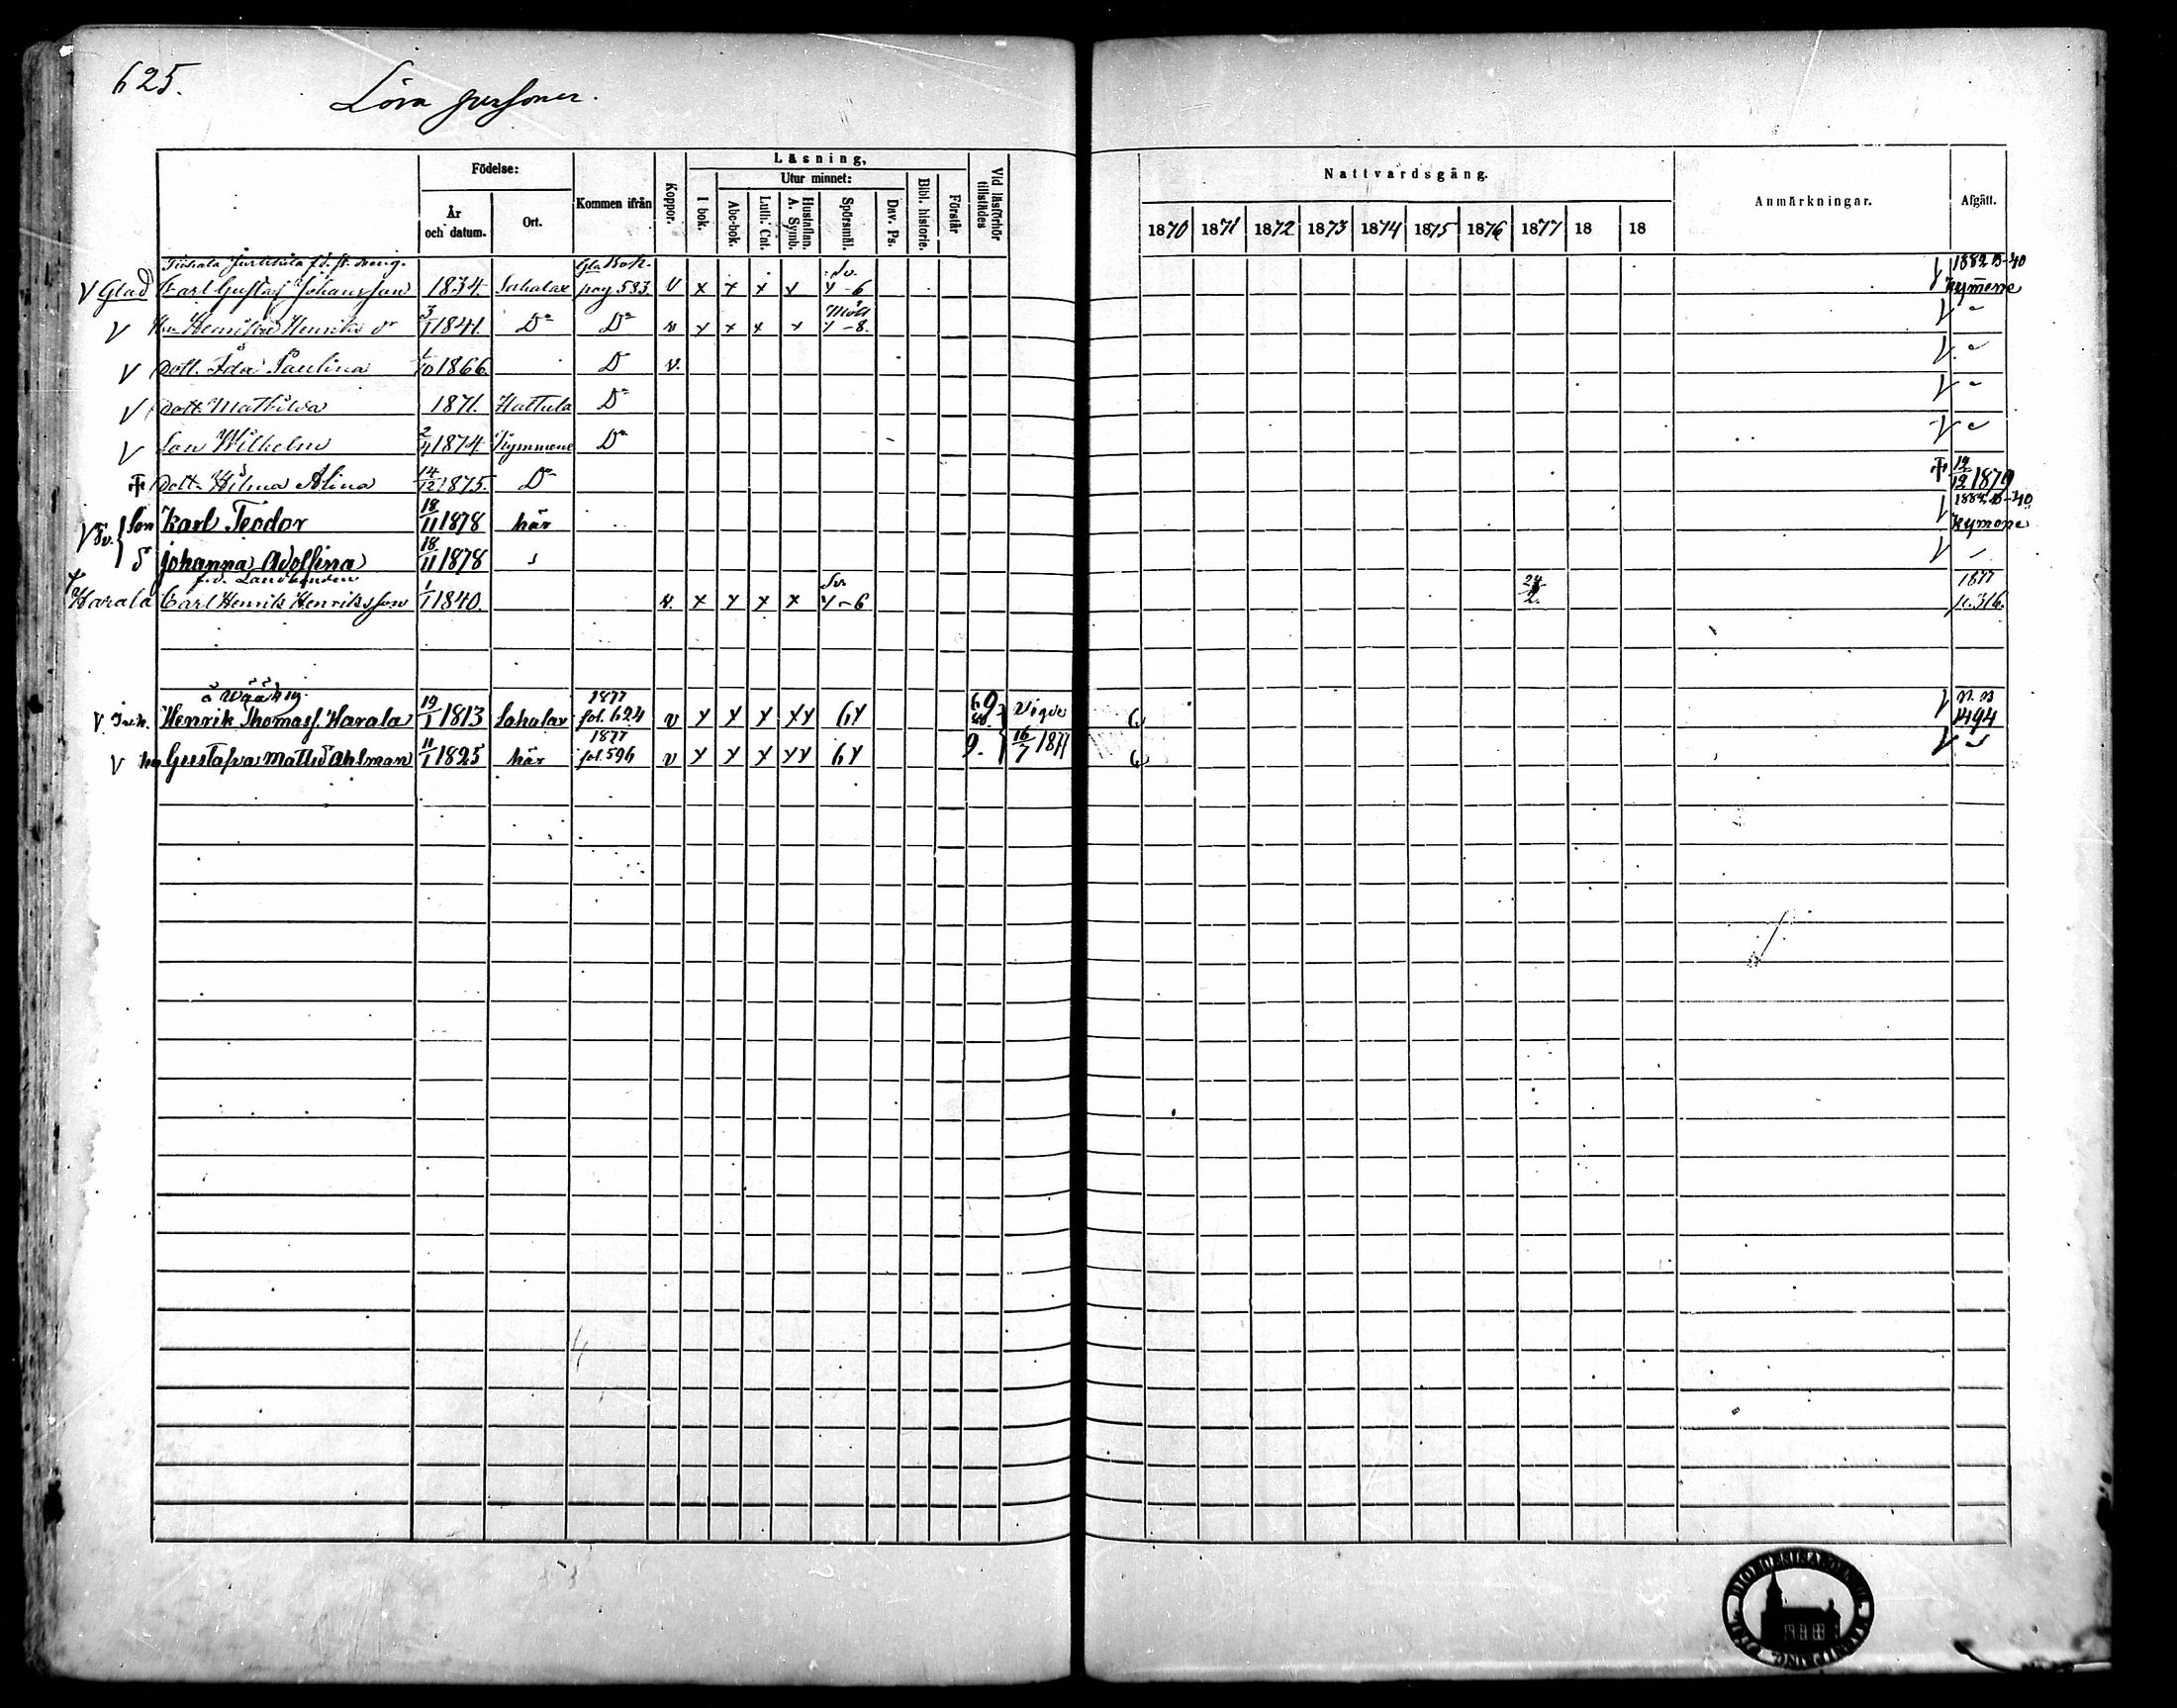 625.
Löva personer.
Födelse: Kommen ifrån Koppor. Läsning, Vid läsförhör tillstädes Nattvardsgång. Anmärkningar. Afgått.
År och datum. Ort. I bok. Utur minnet: Bibl. historie. Förstår
Abc-bok. Luth. Cat. Hustaflan. A. Symb. Spörsmål. Dav. Ps.
1870 1871 1872 1873 1874 1875 1876 1877 18 18
Gla Bok. Sv. 1882 B-40
V Glad Carl Gustaf Johansson 1834. Sahalax pag 583. v x x x x y-6 V Kymene
V Hu Henrika Henriks dr 3/1 1841. Do Do v x x x x y-8. V
V Dott. Ida Paulina 1/10 1866. D v. V
V Dott. Mathilda 1871. Hattula Do V
V Son Wilhelm 2/4 1874. Kymmene Do V
Dott. Hilma Alina 14/12 1875. Do 19/12 1879
1882 B-40
V Tv. Son Karl Teodor 18/11 1878 här V Kymene
D Johanna Adolfina 18/11 1878 V
f.d. Landbonden Sv 1877
Harala Carl Henrik Henriksson 1/1 1840. v. x x x x y-6 24/2. p. 316.
1877
V Henrik Thomass. Harala 19/1 1813 Sahalax fol. 624 v x x x xx 6y 69 Vigde V 1494
1877
V hu Gustafva Mattsd Ahlman 11/1 1825 här fol. 596 v x x x xx 6y 9. 16/7 1877 V